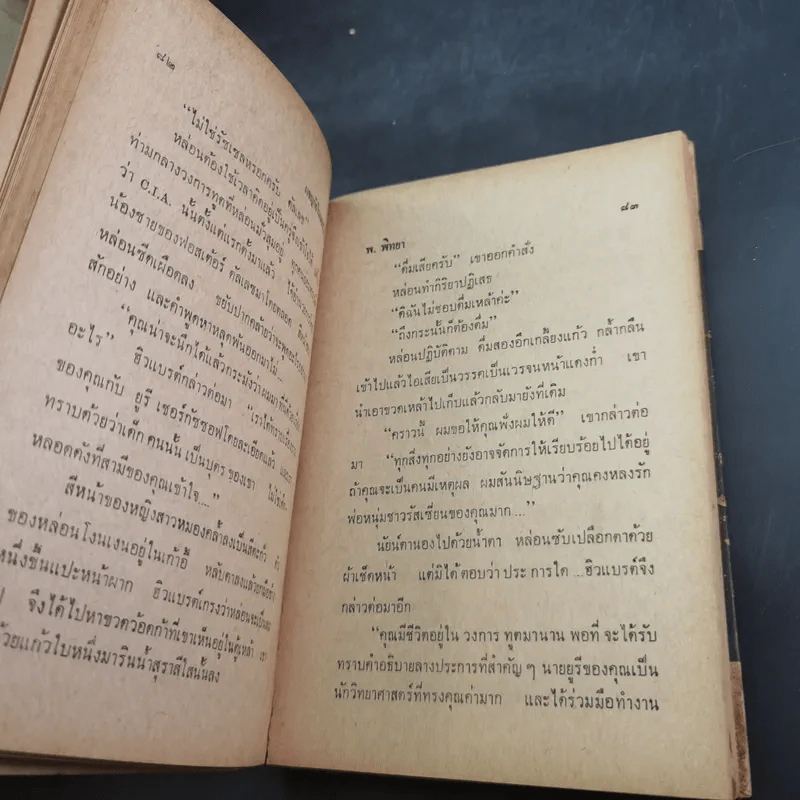 ๘๒
“ไม่ใช่รัซเซลหรอกครับ
หล่อนต้องใช้เวลาคิดอยู่เป็นครู่
ท่ามกลางวงการทูตที่หล่อนมั่วสุมอยู่
ว่า C.I.A. นั้นตั้งแต่แรกตั้งมาแล้ว
น้องชายของฟอสเต้อร์ ดัลเลซมาโดยตลอด
หล่อนซีดเผือดลง ขยับปากคล้ายว่าจะพูด
สักอย่าง และคำพูดหาหลุดพ้นออกมาไม่...
“คุณน่าจะนึกได้แล้วกระมังว่าผมมาที่นี่
อะไร” ฮิวแบรต์กล่าวต่อมา “เราได้ทราบ
ของคุณกับ ยูรี เชอร์กัซซอฟโดยละเอียดแล้ว
ทราบด้วยว่าเด็กคนนั้น เป็นบุตรของเขา
หลอดดังที่สามีของคุณเข้าใจ....”
สีหน้าของหญิงสาวหมองคล้ำลงเป็นสีตะกั่ว
ของหล่อนโงนเงนอยู่ในเก้าอี้ หลับตาลงแล้วยกมือข้าง
หนึ่งขึ้นแปะหน้าผาก ฮิวแบรต์เกรงว่าหล่อนจะเป็นลม
จึงได้ไปหาขวดว้อดก้าที่เขาเห็นอยู่ในตู้เหล้า
ด้วยแก้วใบหนึ่งมารินน้ำสุราสีใสนั้นลง
พ. พิทยา
๘๓
“ดื่มเสียครับ” เขาออกคำสั่ง
หล่อนทำกิริยาปฏิเสธ
“ดิฉันไม่ชอบดื่มเหล้าค่ะ”
“ถึงกระนั้นก็ต้องดื่ม”
หล่อนปฏิบัติตาม ดื่มสองอึกเกลี้ยงแก้ว กล้ำกลืน
เข้าไปแล้วไอเสียเป็นวรรคเป็นเวรจนหน้าแดงก่ำ เขา
นำเอาขวดเหล้าไปเก็บแล้วกลับมายังที่เดิม
“คราวนี้ ผมขอให้คุณฟังผมให้ดี” เขากล่าวต่อ
มา “ทุกสิ่งทุกอย่างยังอาจจัดการให้เรียบร้อยไปได้อยู่
ถ้าคุณจะเป็นคนมีเหตุผล ผมสันนิษฐานว่าคุณคงหลงรัก
พ่อหนุ่มชาวรัสเซี่ยนของคุณมาก....”
นัยน์ตานองไปด้วยน้ำตา หล่อนซับเปลือกตาด้วย
ผ้าเช็ดหน้า แต่มิได้ตอบว่าประการใด...ฮิวแบรต์จึง
กล่าวต่อมาอีก
“คุณมีชีวิตอยู่ใน วงการ ทูตมานาน พอที่ จะได้รับ
ทราบคำอธิบายลางประการที่สำคัญ ๆ นายยูรีของคุณเป็น
นักวิทยาศาสตร์ที่ทรงคุณค่ามาก และได้ร่วมมือทำงาน